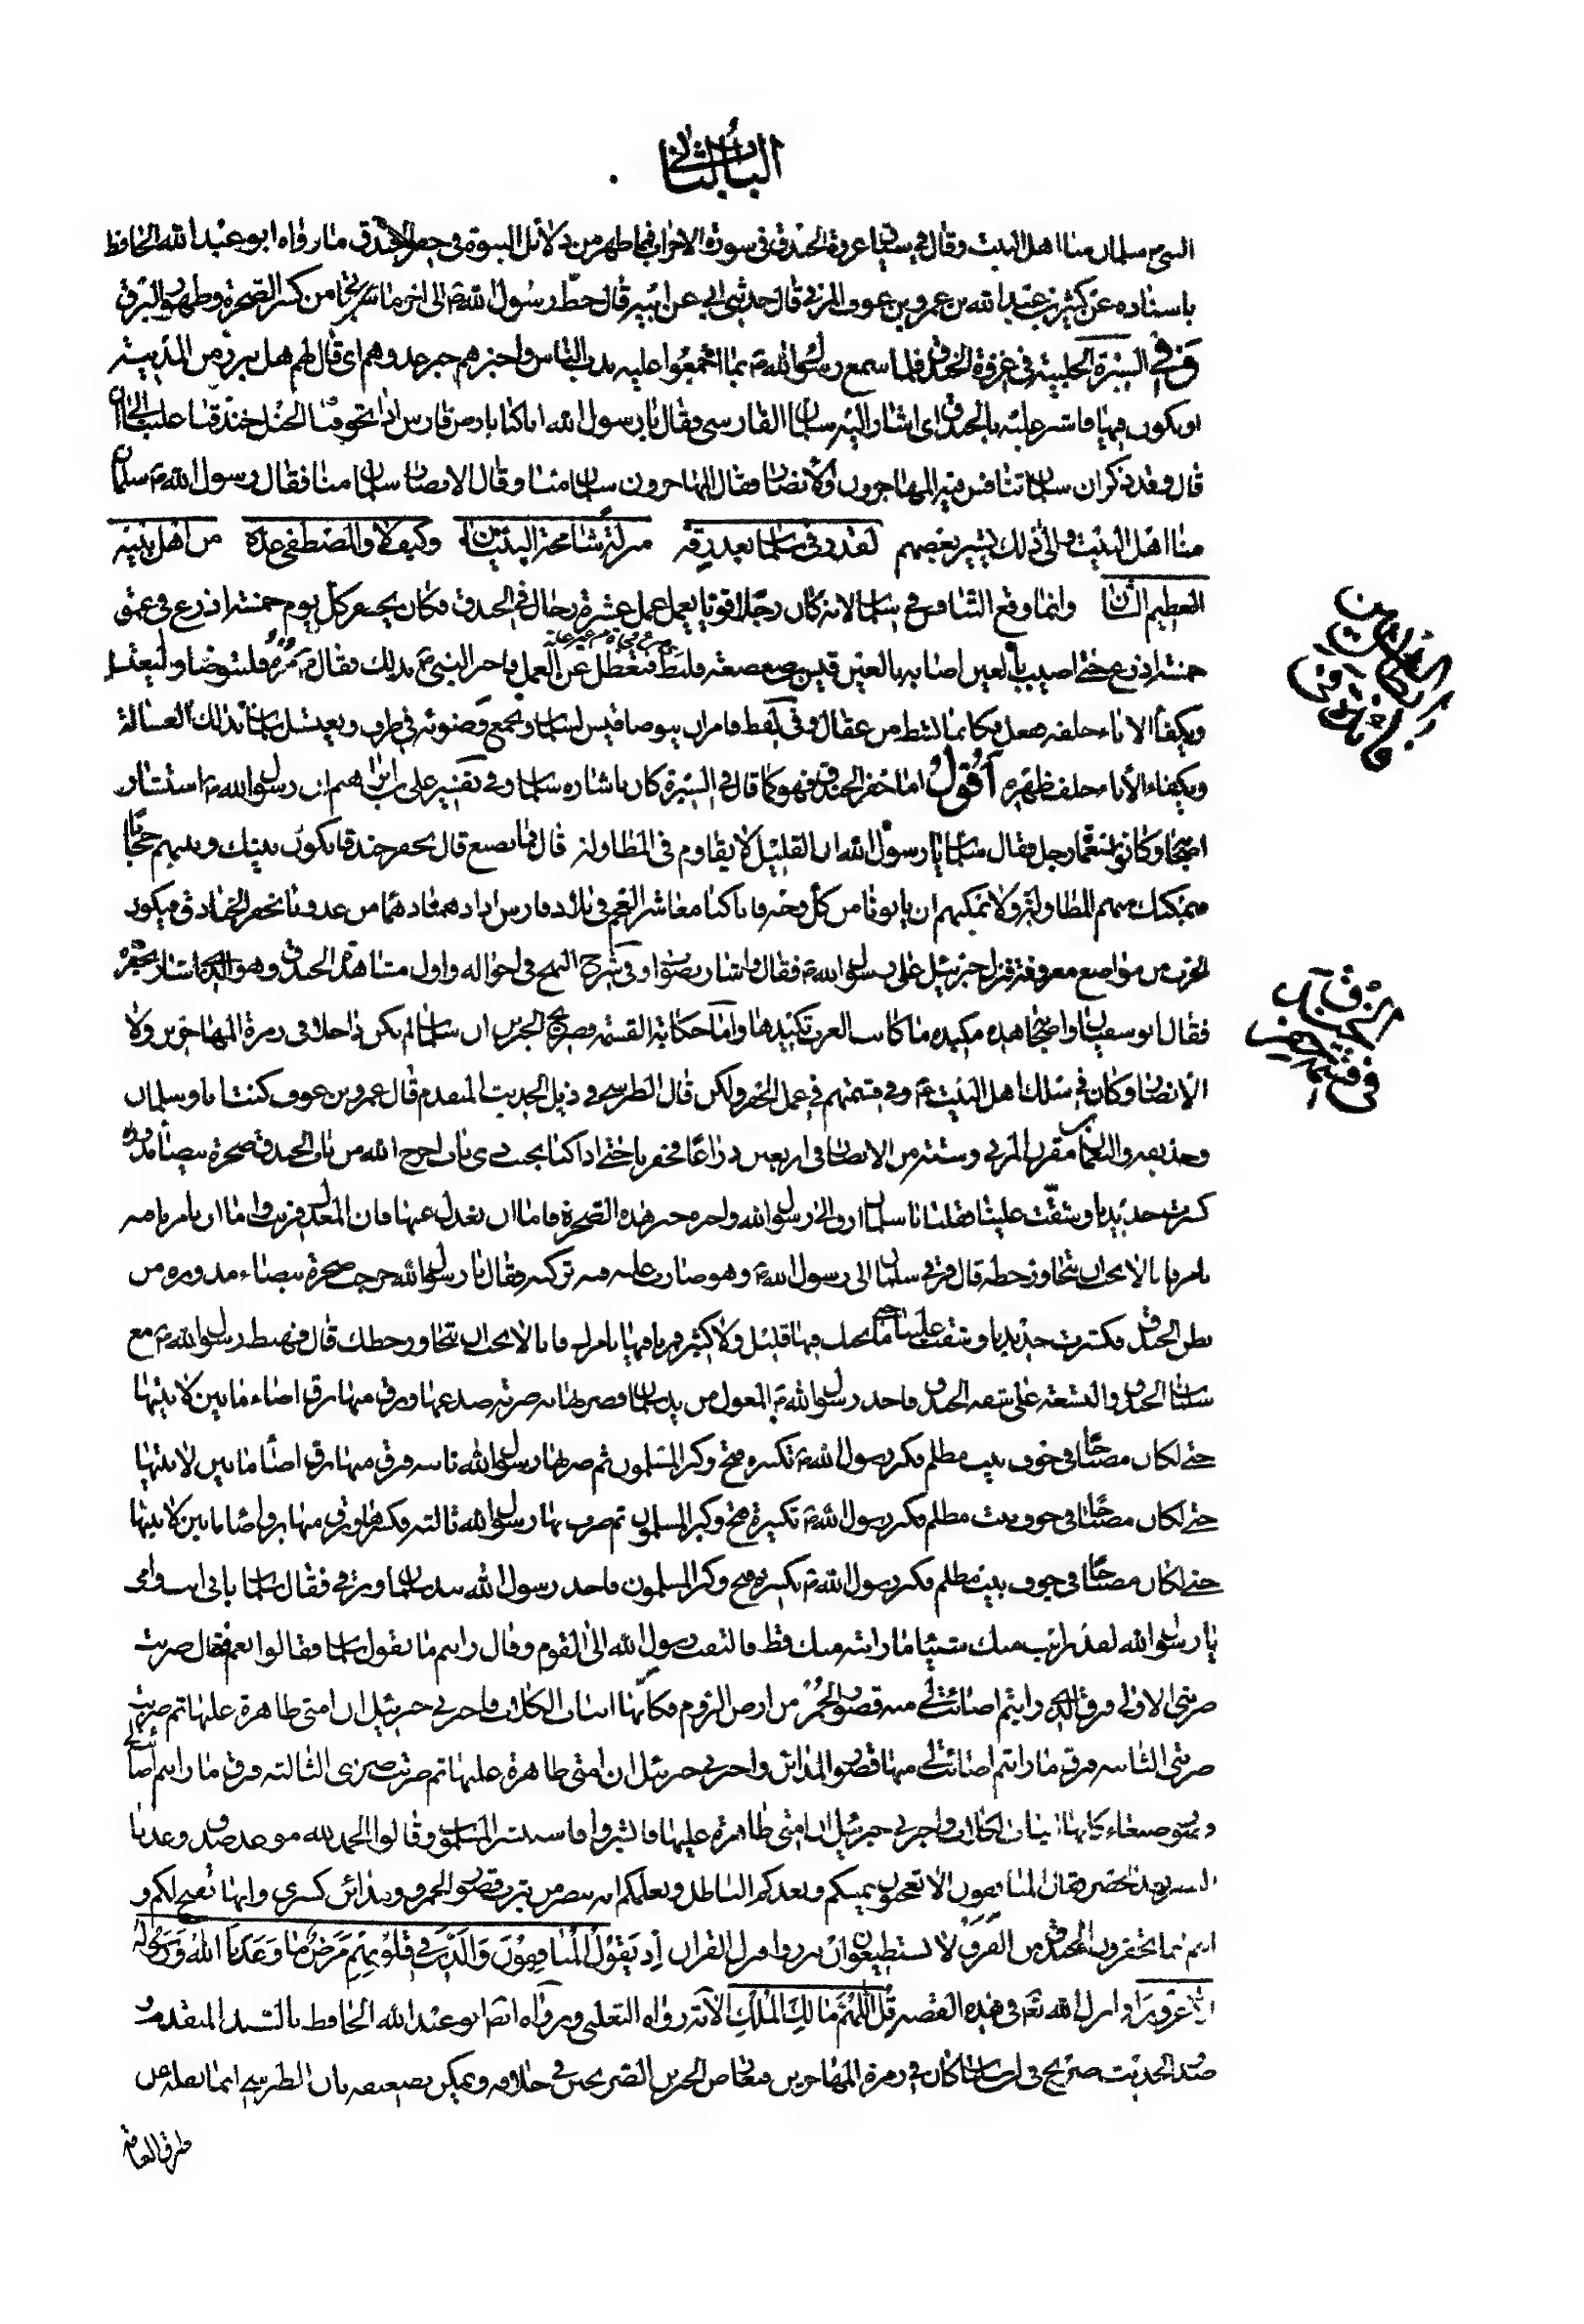 الباب الثاني
النبي ص سلمان منا اهل البيت وقال في بيان غزوة الخندق في سورة الاحزاب فيما ظهر من دلائل النبوة في حفر الخندق ما رواه ابو عبد الله الحافظ
باسناده عن كثير بن عبد الله بن عمرو بن عوف المزني قال حدثني ابي عن ابيه قال خط رسول الله ص الى اخر ما من كسر الصخرة وظهور البرق
وَفي السيرة الحلبية في غزوة الخندق فلما سمع رسول الله ص بما اجمعوا عليه ندب الناس واخبرهم خبر عدوهم اى قال لهم هل نبرز من المدينة
او نكون فيها فاشير عليه بالخندق اى اشار اليه سلمان الفارسي فقال يا رسول الله انا كنا بارض فارس اذا تخوفنا الخيل خندقنا علينا الى ان
قال وقد ذكر ان سلمان تنافس فيه المهاجرون والانصار فقال المهاجرون سلمان منا وقال الانصار سلمان منا فقال رسول الله ص سلمان
منا اهل البيت والى ذلك يشير بعضهم لقد رقى سلمان بعد رقه منزلة شامخة البنيان وكيف لا والمصطفى عده من اهل بيته
العظيم الشان وانما وقع التنافس في سلمان لانه كان رجلا قويا يعمل عمل عشرة رجال في الخندق فكان يحفر كل يوم خمسة اذرع في عمق
خمسة اذرع حتى اصيب بالعين اصابه بالعين قيس بن صعصعة فلبط فتعطل عن العمل فاخبر النبي ص بذلك فقال ص مروه فليتوضا وليغتسل
ويكفأ الاناء خلفه ففعل فكانما نشط من عقال وفي لفظ فامر ان يتوضا قيس لسلمان ويجمع وضوئه في ظرف ويغتسل سلمان بذلك الغسالة
ويكفاء الاناء خلف ظهره اَقُولُ اما حفر الخندق فهو كما قال في السيرة كان باشارة سلمان وفي تفسير علي بن ابراهيم ان رسول الله ص استشار
اصحابه وكانوا سبعمأة رجل فقال سلمان يا رسول الله ان القليل لا يقاوم في المطاولة قال فما نصنع قال نحفر خندقا يكون بينك وبينهم حجابا
فيمكنك منعهم المطاولة ولا يمكنهم ان ياتونا من كل وجه فانا كنا معاشر العجم في بلاد فارس اذا دهمنا دهم من عدونا نحفر الخنادق فيكون
الحرب من مواضع معروفة فنزل جبرئيل على رسول الله ص فقال اشار بصواب وفي شرح النهج في احواله واول مشاهده الخندق وهو الذي اشار بحفره
فقال ابو سفيان واصحابه هذه مكيدة ما كانت العرب تكيدها واما حكاية القسمة فصريح الخبرين ان سلمان لم يكن داخلا في زمرة المهاجرين ولا
الانصار وكان في سلك اهل البيت ع وفي قسمتهم في عمل الحفر ولكن قال الطبرسي في ذيل الحديث المتقدم قال عمرو بن عوف كنت انا وسلمان
وحذيفة والنعمان بن مقرن المزني وستة من الانصار في اربعين ذراعا فحفرنا حتى اذا كنا بجنب ذى ناب اخرج الله من باطن الخندق صخرة بيضاء مدورة
كسرت حديدنا وشقت علينا فقلنا يا سلمان ارق الى رسول الله واخبره خبر هذه الصخرة فاما ان نعدل عنها فان المعدل قريب واما ان يامرنا فيه
بامره فانا لا نحب ان نتجاوز خطه قال فرقي سلمان الى رسول الله ص وهو ضارب عليه قبة تركية فقال يا رسول الله خرجت صخرة بيضاء مدورة من
بطن الخندق فكسرت حديدنا وشقت علينا حتى ما يحك فيها قليل ولا كثير فمرنا فيها بامرك فانا لا نحب ان نتجاوز خطك قال فهبط رسول الله ص مع
سلمان الخندق والتسعة على شفة الخندق فاخذ رسول الله ص المعول من يد سلمان فضربها به ضربة صدعها وبرق منها برق اضاء ما بين لابتيها
حتى لكان مصباحا في جوف بيت مظلم فكبر رسول الله ص تكبيرة فتح وكبر المسلمون ثم ضربها رسول الله ثانية فبرق منها برق اضاء ما بين لابتيها
حتى لكان مصباحا في جوف بيت مظلم فكبر رسول الله ص تكبيرة فتح وكبر المسلمون ثم ضرب بها رسول الله ثالثة فكسرها وبرق منها برق اضاء ما بين لابتيها
حتى لكان مصباحا في جوف بيت مظلم فكبر رسول الله ص تكبيرة فتح وكبر المسلمون فاخذ رسول الله بيد سلمان ورقي فقال سلمان بابي انت وامى
يا رسول الله لقد رايت منك شيئا ما رايته منك قط فالتفت رسول الله الى القوم وقال رايتم ما يقول سلمان فقالوا نعم فقال ضربت
ضربتى الاولى فبرق الذي رايتم اضائت لي منه قصور الحمر من ارض الروم فكانها انياب الكلاب واخبرني جبرئيل ان امتى ظاهرة عليها ثم ضربت
ضربتى الثانية فبرق ما رايتم اضائت لي منها قصور المدائن واخبرني جبرئيل ان امتى ظاهرة عليها ثم ضربت ضربتى الثالثة فبرق ما رايتم اضائت لي
قصور صنعاء كانها انياب الكلاب واخبرني جبرئيل ان امتى ظاهرة عليها فابشروا فاستبشر المسلمون وقالوا الحمد لله موعد صدق وعدنا
النصر بعد الحصر فقال المنافقون الا تعجبون يمنيكم ويعدكم الباطل ويعلمكم انه يبصر من يثرب قصور الحمر ومدائن كسرى وانها تفتح لكم و
انتم انما تحفرون الخندق من الفرق لا تستطيعون ان تبرزوا فنزل القران اِذ يَقُولُ الْمُنَافِقُونَ وَالَّذِينَ فِي قُلُوبِهِم مَرَضٌ مَا وَعَدَنَا اللهُ وَرَسُولُهُ
اِلّا غُرُورًا وانزل الله تع في هذه القصة قُلِ اللّٰهُمَّ مَالِكَ الْمُلْكِ الآية رواه الثعلبي ورواه ايضا ابو عبد الله الحافظ بالسند المتقدم و
هذا الحديث صريح في ان سلمان كان في زمرة المهاجرين فيعارض الخبرين الصريحين في خلافه ويمكن تضعيفه بان الطبرسي انما نقله من
طرق العامة